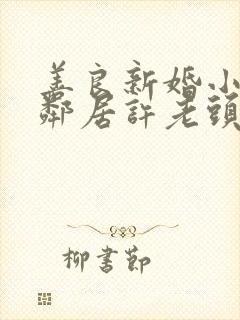 善良新婚小
鄰居許老頭
柳書郎